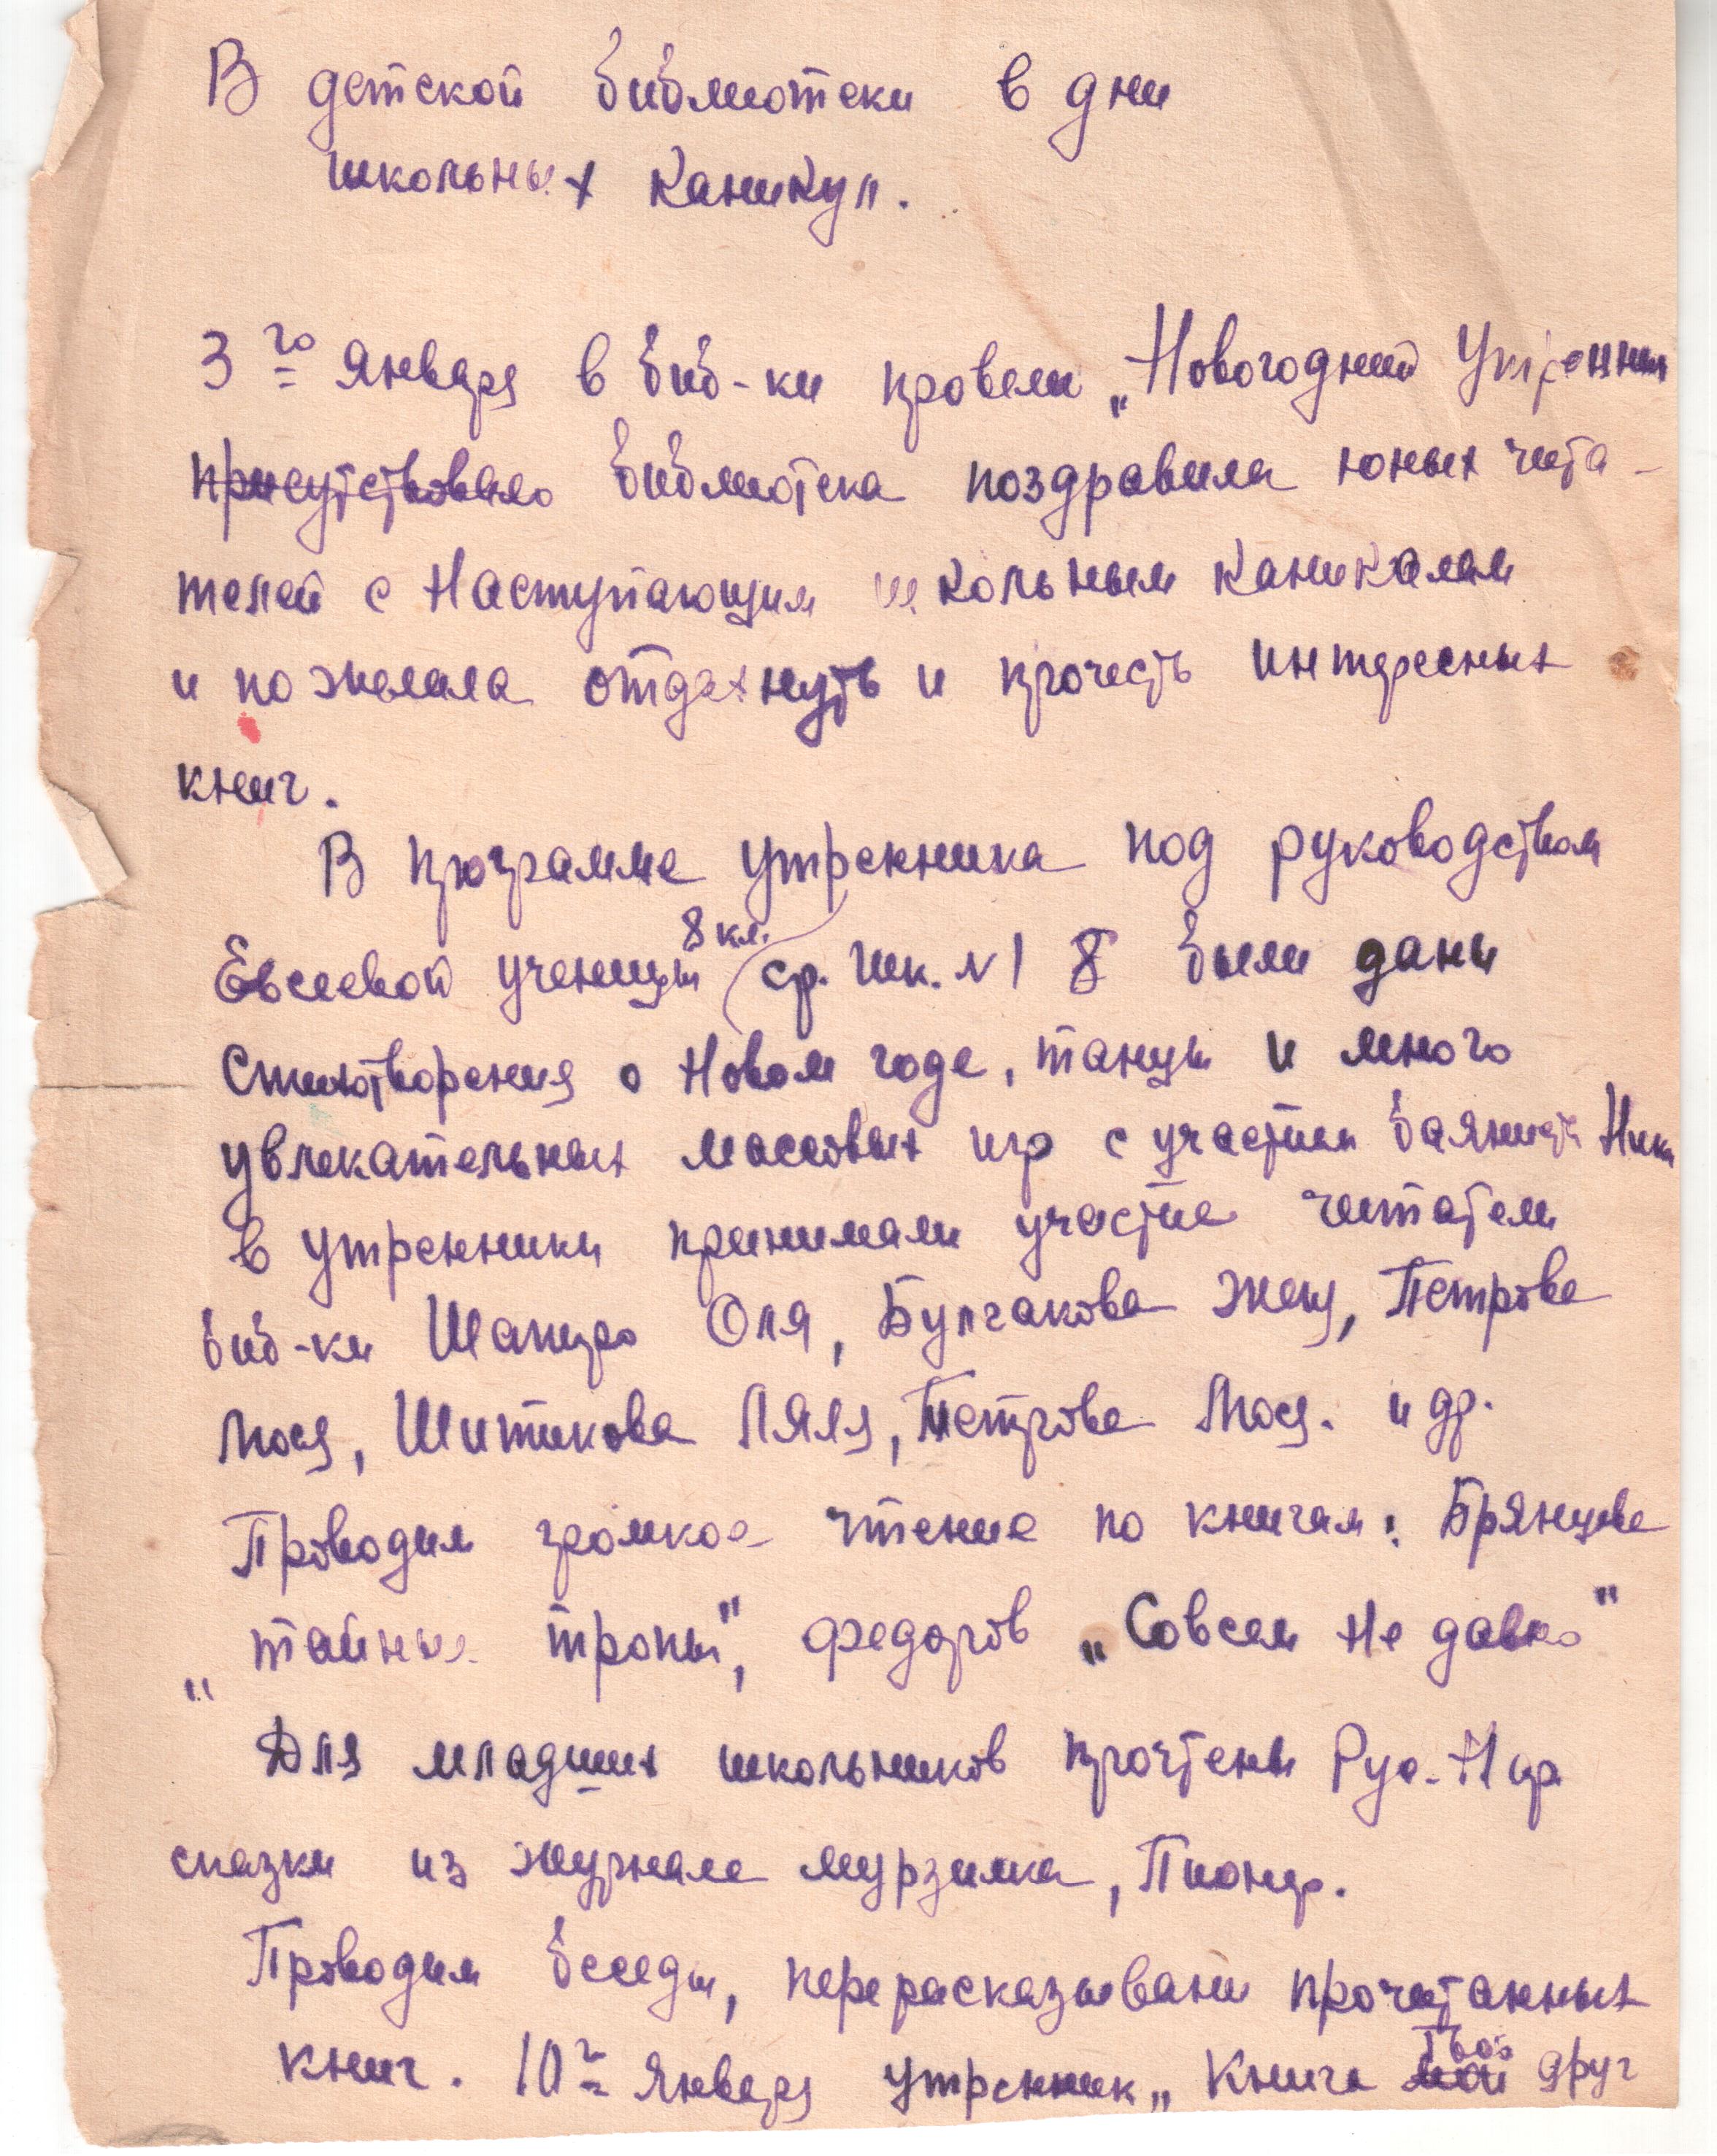 В детской библиотеки в дни
школьных каникул.
3го января в биб-ки провели „Новогодний Утренник
присутствовало библиотека поздравила юных чита-
телей с Наступающим школьным каникалам
и пожелала отдахнуть и прочесть интересных
книг.
В программе утренника под руководством
Евсеевой ученицы 8 кл. ср. шк. №1 были даны
Стихотворения о Новом годе, танцы и много
увлекательных массовых игр с участием баяниста
в утренники принимали участие читатели
биб-ки Шапиро Оля, Булгакова Женя, Петрова
Люся, Шитикова Ляля, Петрова Люся. и др.
Проводим громкое чтение по книгам: Брянцева
„тайные тропы", Федоров „Совсем не давно"
Для младших школьников прочтены Рус. Нар
сказки из журнала мурзилка, Пионер.
Проводим беседы, перерасказывани прочитанных
книг. 10го января утренник „Книга твой друг